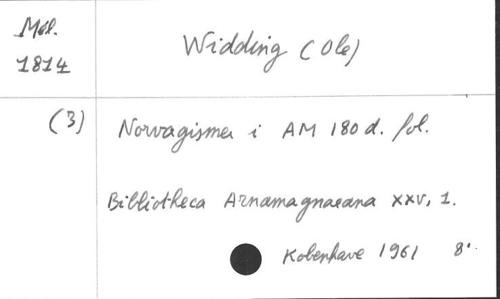 Mél.
1814
Widding (Ole)
(3)
Norvagismer i AM 180 d. fol.
Bibliotheca Arnamagnaeana XXV, 1.
Kobenhave 1961 8°.